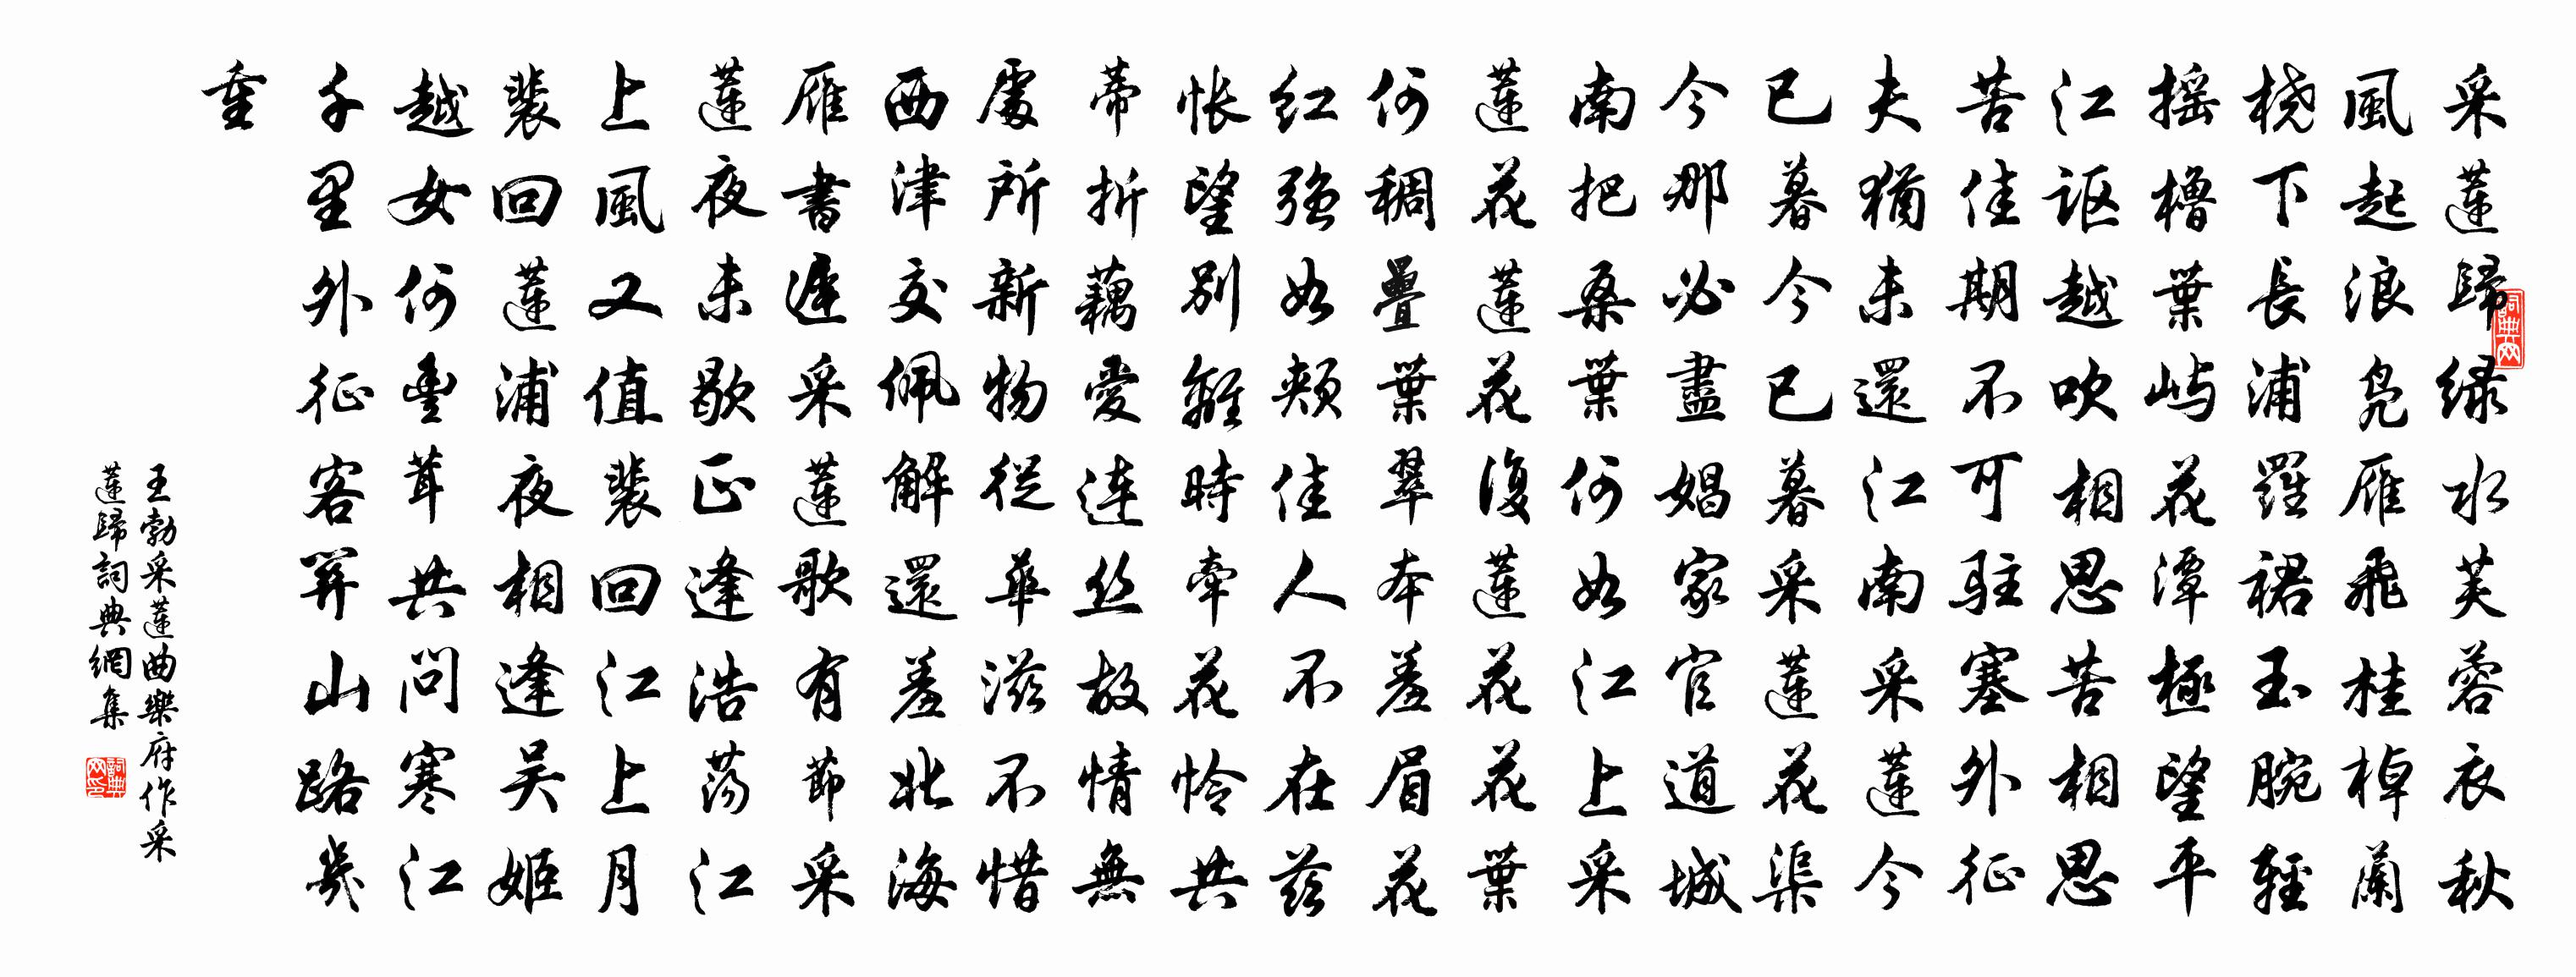 采蓮歸綠水芙蓉衣秋
風起浪鳧雁飛桂棹蘭
橈下長浦羅裙玉腕輕
搖櫓葉嶼花潭極望平
江謳越吹相思苦相思
苦佳期不可駐塞外征
夫猶未還江南采蓮今
已暮今已暮采蓮花渠
今那必盡娼家官道城
南把桑葉何如江上采
蓮花蓮花復蓮花花葉
何稠疊葉翠本羞眉花
紅強如頰佳人不在茲
悵望別離時牽花憐共
蒂折藕愛連丝故情無
處所新物從華滋不惜
西津交佩解還羞北海
雁書遲采蓮歌有節采
蓮夜未歇正逢浩蕩江
上風又值裴回江上月
裴回蓮浦夜相逢吳姬
越女何豐茸共問寒江
千里外征客關山路幾
重
王勃采蓮曲樂府作采
蓮歸詞典網集
詞典网
詞典网印